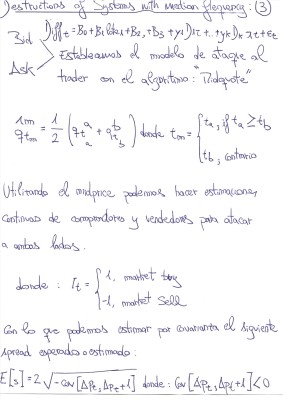 Destructions of Systems with median frequency: (3)
Bid Diff t = B0 + B1 + B2, + B3 + y1 Dit + .. + yk Dk it + et
Ask Establecemos el modelo de ataque al
trader con el algoritmo: "Ridequote"
1m q tm = 1/2 (q ta a + q tb b) donde tm = { ta, if ta ≥ tb
tb, contrario
Utilizando el midprice podemos hacer estimaciones
continuas de compradores y vendedores para atacar
a ambos lados.
donde: It = { 1, market buy
-1, market sell
Con lo que podemos estimar por covarianza el siguiente
spread esperado o estimado:
E[s] = 2 √-Cov[Δpt, Δpt+1] donde: Cov[Δpt, Δpt+1] < 0